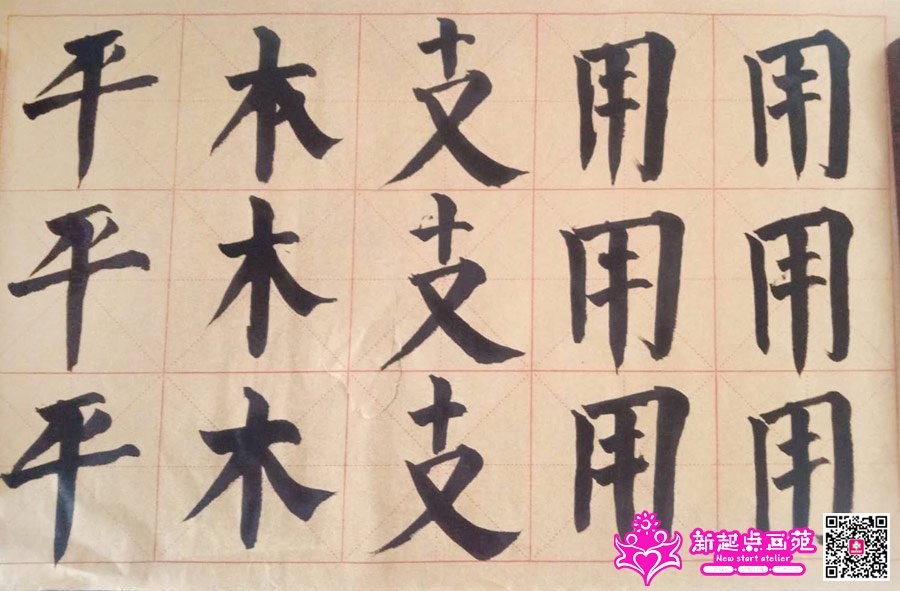 平木支用用
平木支用用
平木支用用
新起点画苑
New start atelier